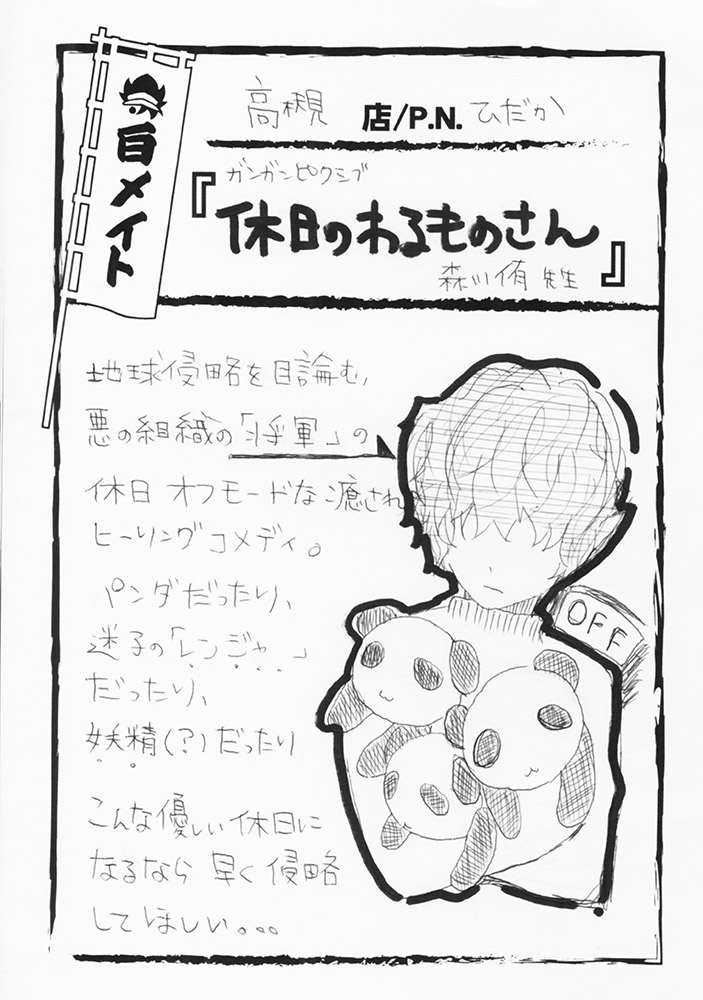 百メイト
高槻 店/P.N. ひだか
ガンガンピクシブ
『休日のわるものさん』
森川侑 先生
地球侵略を目論む、
悪の組織の「将軍」の
休日 オフモードな癒され
ヒーリングコメディ。
パンダだったり、
迷子の「レンジャー」
だったり、
妖精(?)だったり
こんな優しい休日に
なるなら 早く侵略
してほしい。。。
OFF